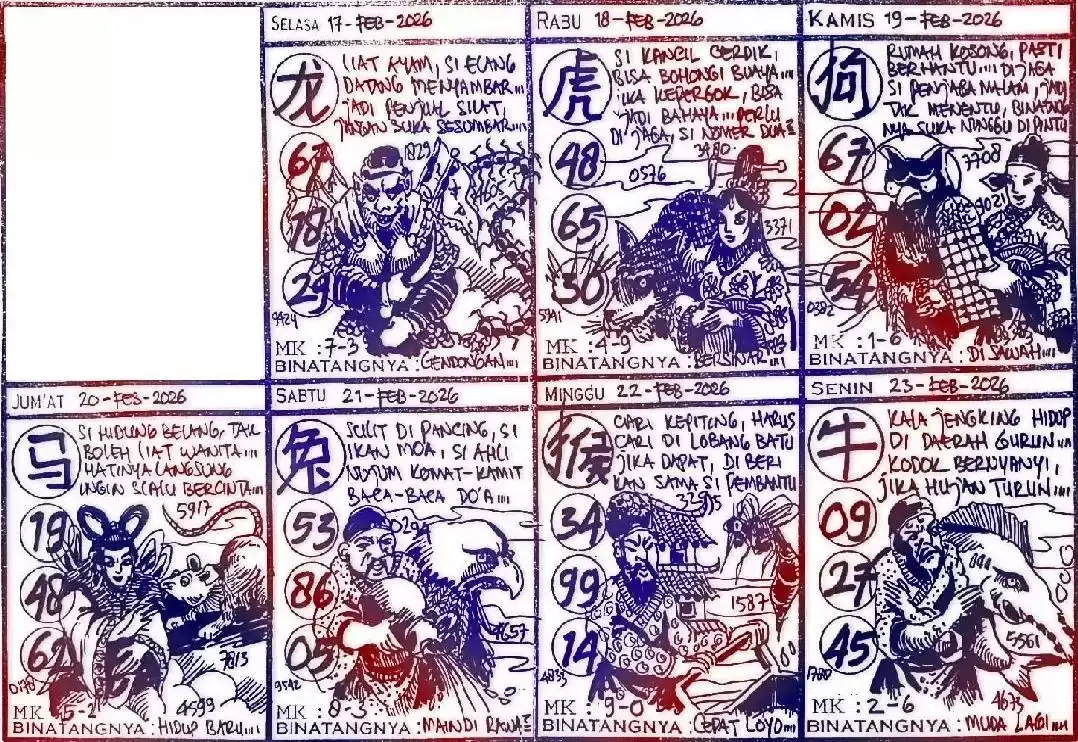 SELASA 17-FEB-2026
龙
LIAT AYAM, SI ELANG
DATANG MENYAMBAR....
JADI PENJUAL SILAT,
JANGAN SUKA SESOMBAR....
67
18
29
1829
9424
MK : 7-3
BINATANGNYA : GENDONGAN....
RABU 18-FEB-2026
虎
SI KANCIL CERDIK,
BISA BOHONGI BUAYA....
JIKA KEPERGOK, BISA
JADI BAHAYA... PERLU
DI JAGA, SI NOMER DUA
48
65
30
3480
0576
3371
5941
MK : 4-9
BINATANGNYA : BERSINAR....
KAMIS 19-FEB-2026
狗
RUMAH KOSONG, PASTI
BERHANTU.... DI JAGA
SI PENJAGA MALAM, JADI
TAK MENENTU, BINATANG
NYA SUKA NUNGGU DI PINTU
67
02
54
7708
9021
0382
MK : 1-6
BINATANGNYA : DI SAWAH....
JUM'AT 20-FEB-2026
马
SI HIDUNG BELANG, TAK
BOLEH LIAT WANITA....
HATINYA LANGSUNG
INGIN SLALU BERCINTA....
19
48
62
5917
7813
4599
MK : 5-2
BINATANGNYA : HIDUP BARU....
SABTU 21-FEB-2026
兔
SULIT DI PANCING, SI
IKAN MOA, SI AHLI
NUJUM KOMAT-KAMIT
BACA-BACA DO'A....
53
86
05
0294
4657
9542
MK : 8-3
BINATANGNYA : MANDI RAWA
MINGGU 22-FEB-2026
猴
CARI KEPITING, HARUS
CARI DI LOBANG BATU
JIKA DAPAT, DI BERI
KAN SAMA SI PEMBANTU
34
99
14
1587
4833
MK : 9-0
BINATANGNYA : CEPAT LOYO....
SENIN 23-FEB-2026
牛
KALA JENGKING HIDUP
DI DAERAH GURUN....
KODOK BERNYANYI,
JIKA HUJAN TURUN....
09
27
45
5561
4673
MK : 2-6
BINATANGNYA : MUDA LAGI....